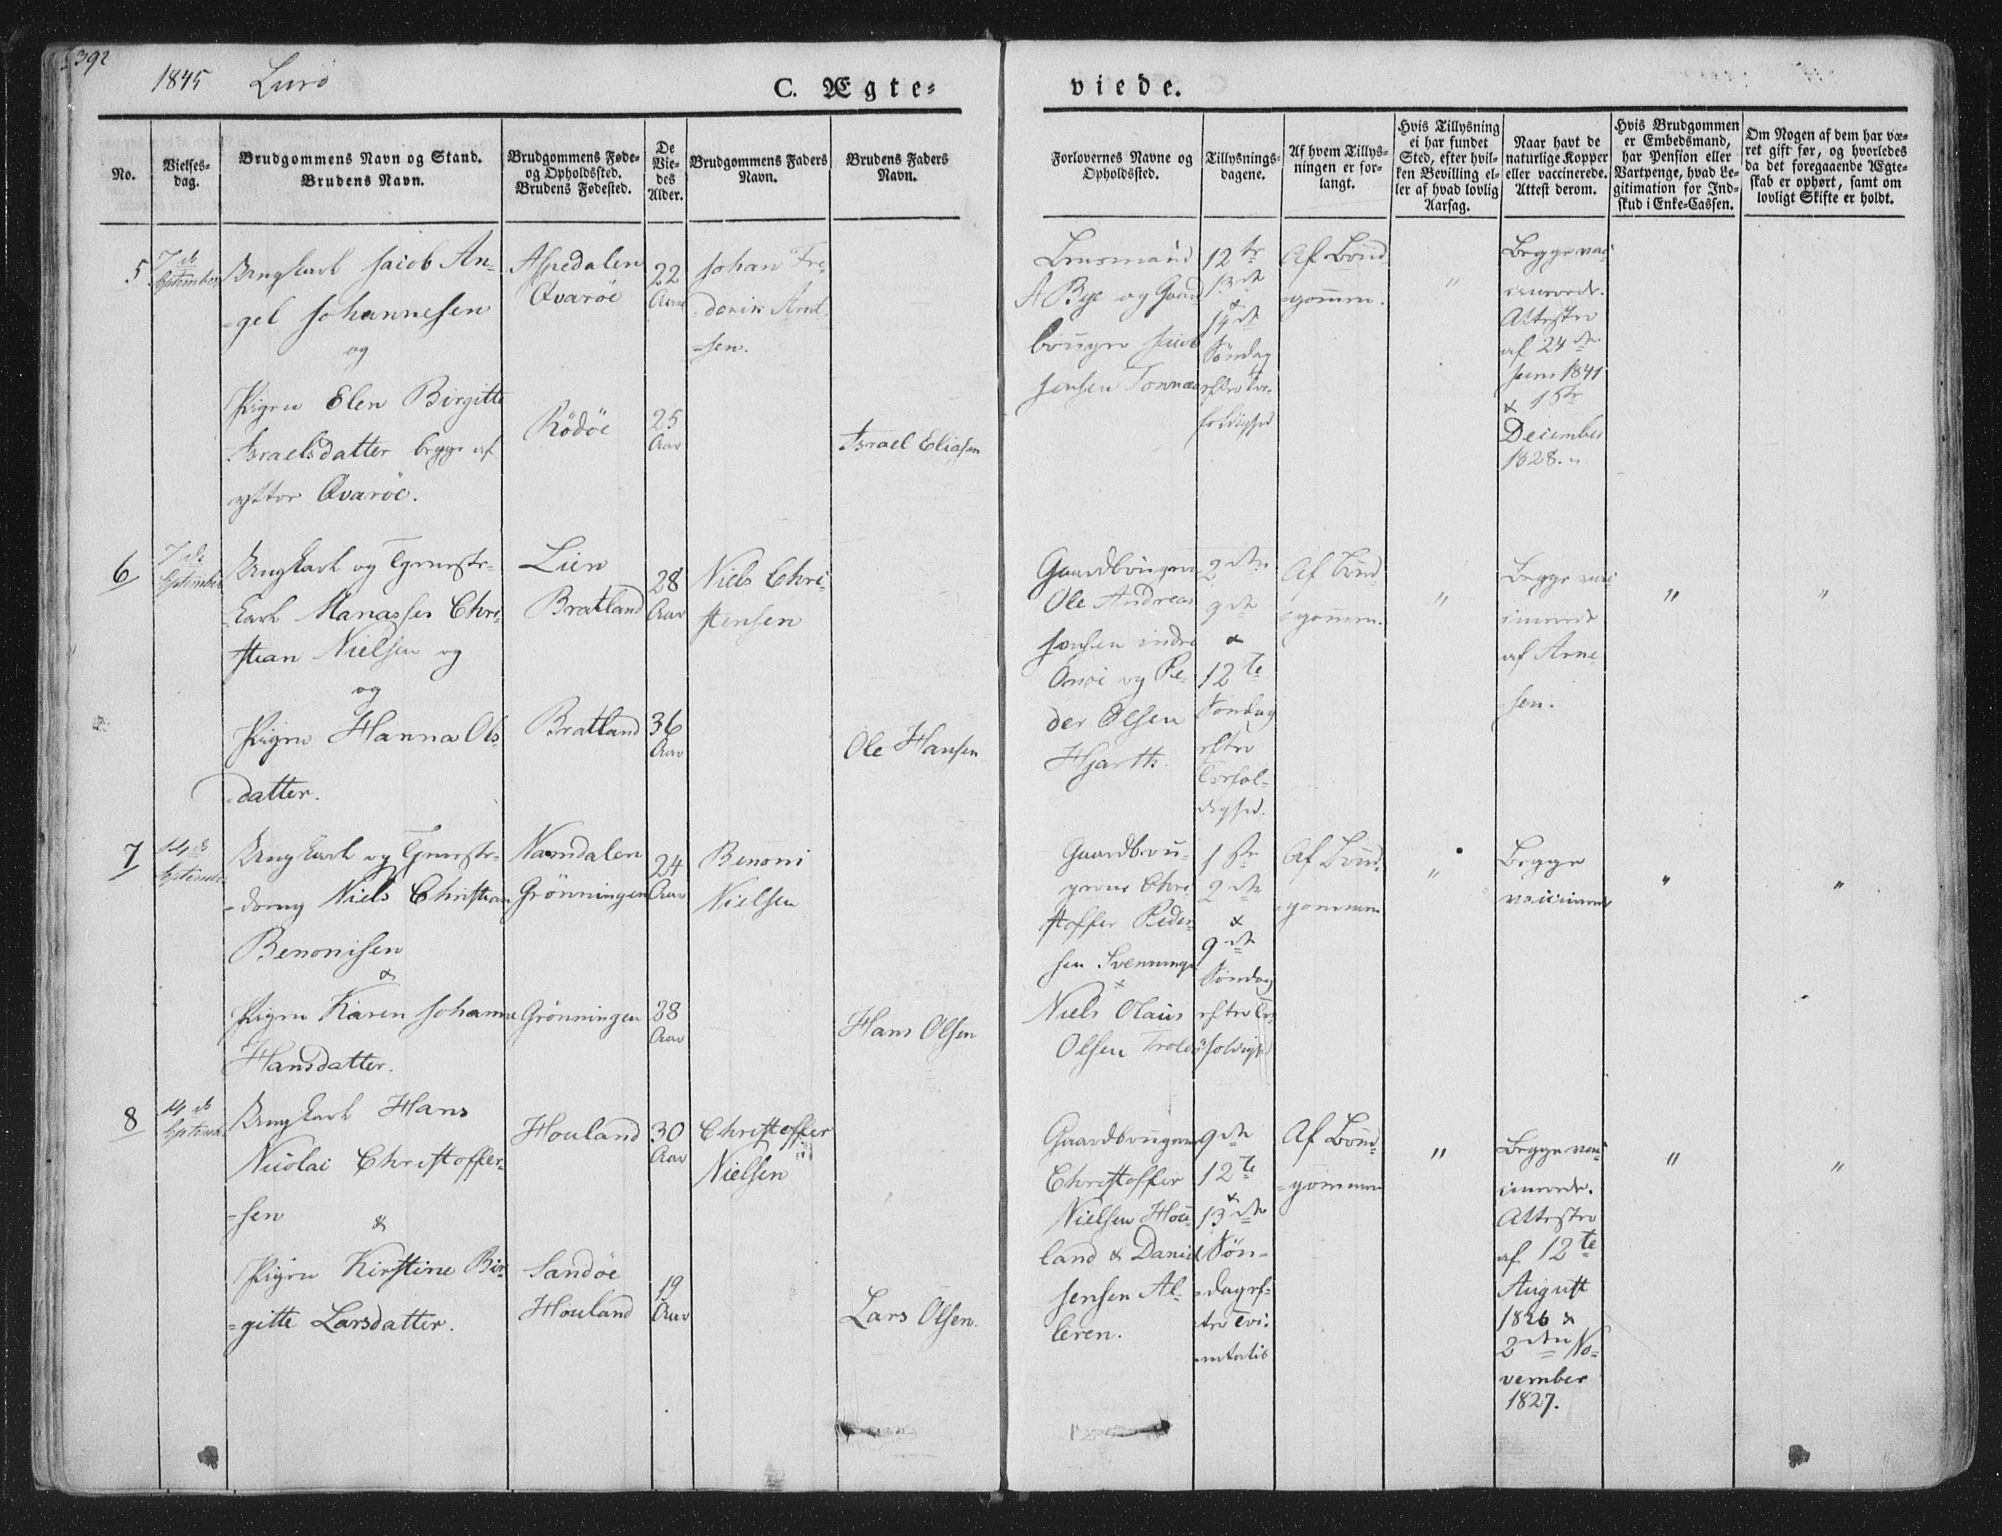 392
1845 Lurö
C. Ægte=
viede.
No.
Vielses-
dag.
Brudgommens Navn og Stand.
Brudens Navn.
Brudgommens Føde-
og Opholdssted.
Brudens Fødested.
De
Vie-
des
Alder.
Brudgommens Faders
Navn.
Brudens Faders
Navn.
Forlovernes Navne og
Opholdssted.
Tillysnings-
dagene.
Af hvem Tillys-
ningen er for-
langt.
Hvis Tillysning
ei har fundet
Sted, efter hvil-
ken Bevilling el-
ler af hvad lovlig
Aarsag.
Naar havt de
naturlige Kopper
eller vaccinerede.
Attest derom.
Hvis Brudgommen
er Embedsmand,
har Pension eller
Vartpenge, hvad Le-
gitimation for Ind-
skud i Enke-Cassen.
Om Nogen af dem har væ-
ret gift før, og hvorledes
da det foregaaende Ægte-
skab er ophørt, samt om
lovligt Skifte er holdt.
5
7de
September
Ungkarl Jacob An-
-gel Johannesen
og
Pigen Elen Birgitte
Israelsdatter begge af
ytter Qvaröe.
Aspedalen
Qvaröe
Rödöe
22
Aar
25
Aar
Johan Fre-
-derik Arnt
-sen.
Israel Eliasen
Lensmand
A Bye og Gaard
bruger Jacob
Jensen Tonnæs
12te
13de
&
14de
Söndag
efter Tre-
foldighed
Af Brud-
-gommen.
"
Begge vac-
cinerede.
Attester
af 24de
Juni 1841
& 1ste
December
1828.
6
7de
September
Ungkarl og Tjeneste-
karl Manasses Chri-
stian Nielsen og
og
Pigen Hanna Ols-
-datter.
Lien
Bratland
Bratland
28
Aar
36
Aar
Niels Chri-
stensen
Ole Hansen
Gaardbrugerne
Ole Andreas
Jensen indre
og Pe-
der Olsen
Hjarth.
2den
9de
&
12te
Söndag
efter
Trefol-
dighed.
Af Brud-
-gommen.
"
Begge vac-
cinerede
af Arne-
sen.
"
"
7
14de
September
Ungkarl og Tjeneste-
-dreng Niels Christian
Benonisen
&
Pigen Karen Johanne
Hansdatter.
Namdalen
Grönningen
Grönningen
24
Aar
28
Aar
Benoni
Nielsen
Hans Olsen
Gaardbru-
gerne Chri-
stoffer Peder-
sen Svenninge
&
Niels Olaus
Olsen
1ste
2den
&
9de
Söndag
efter Tre-
foldighed
Af Brud-
-gommen
"
Begge
vaccinerede
"
"
8
14de
September
Ungkarl Hans
Nicolai Christoffer-
-sen
&
Pigen Kirstine Bir-
-gitte Larsdatter.
Houland
Sandöe
Houland
30
Aar
19
Aar
Christoffer
Nielsen
Lars Olsen.
Gaardbrugerne
Christoffer
Nielsen Hou-
land & Daniel
Jensen Al-
teren.
9de
12te
&
13de
Sön-
-dag ef-
-ter Tri-
-nitatis
Af Brud-
-gommen
"
Begge vac-
cinerede.
Attester
af 12te
August
1826 &
2den No-
vember
1827.
"
"